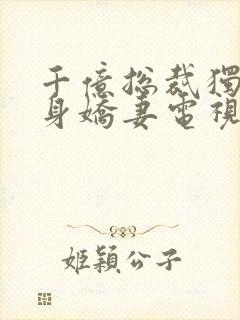 千億總裁獨
身嬌妻電視
姬穎公子